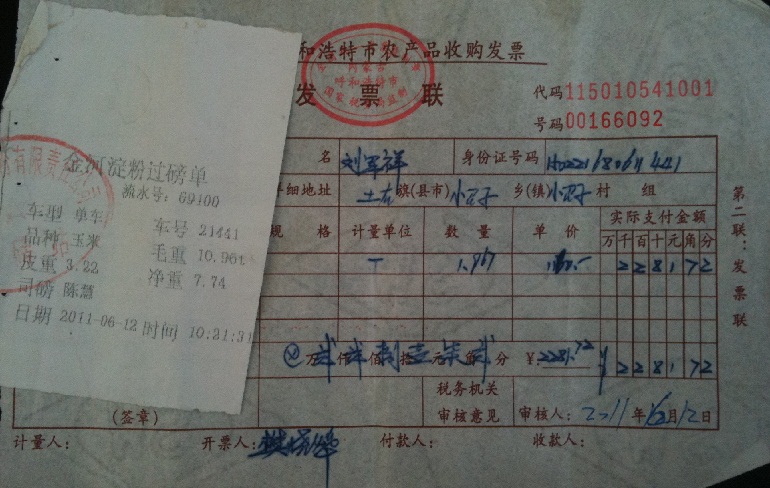 和浩特市农产品收购发票
发 票 联
代码 115010541001
号码 00166092
内蒙古
呼和浩特市
金河淀粉过磅单
流水号: 69100
车型 单车 车号 21441
品种 玉米 毛重 10.96t
皮重 3.22 净重 7.74
司磅 陈慧
日期 2011-06-12 时间 10:21:31
名 刘军祥 身份证号码
细地址 土左 旗(县市) 乡(镇) 村 组
规 格 计量单位 数 量 单 价 实际支付金额
万 千 百 十 元 角 分
T 2 2 8 1 7 2
万 仟 佰 拾 元 角 分 ¥: 2281.72 ¥ 2 2 8 1 7 2
税务机关
审核意见
(签章) 审核人: 2011年 月12日
计量人: 开票人: 付款人: 收款人:
第二联:发票联